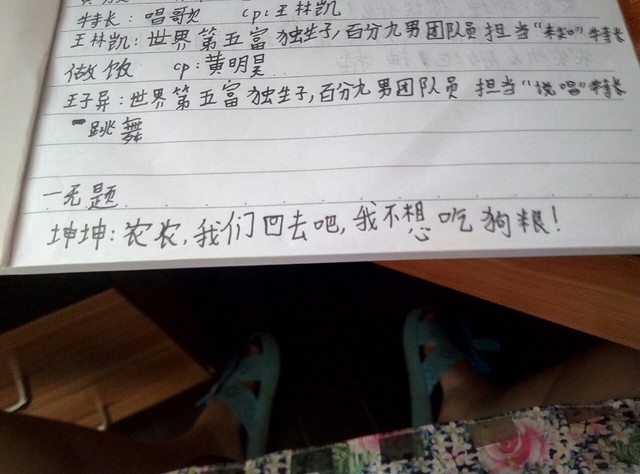 特长：唱歌 cp：王林凯
王林凯：世界第五富独生子，百分九男团队员 担当“ ”特长
做饭 cp：黄明昊
王子异：世界第五富独生子，百分九男团队员 担当“说唱”特长
跳舞
一无题
坤坤：农农，我们回去吧，我不想吃狗粮！